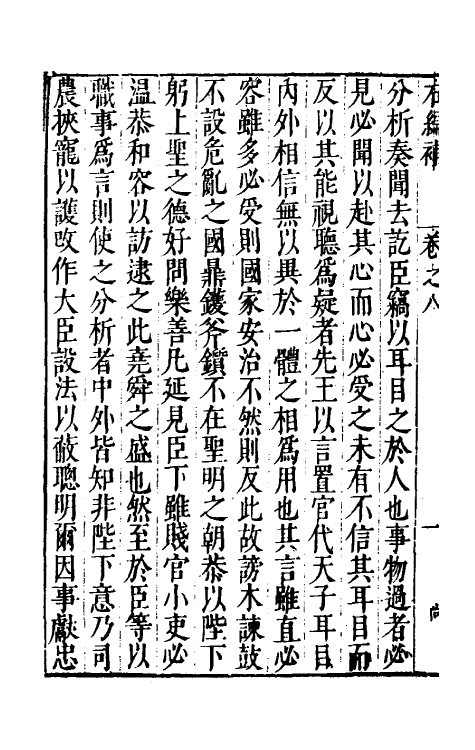 右編補 卷之八 一 尙
分析奏聞去訖臣竊以耳目之於人也事物過者必
見必聞以赴其心而心必受之未有不信其耳目而
反以其能視聽爲疑者先王以言置官代天子耳目
內外相信無以異於一體之相爲用也其言雖直必
容雖多必受則國家安治不然則反此故謗木諫鼓
不設危亂之國鼎鑊斧鑕不在聖明之朝恭以陛下
躬上聖之德好問樂善凡延見臣下雖賤官小吏必
温恭和容以訪逮之此堯舜之盛也然至於臣等以
職事爲言則使之分析者中外皆知非陛下意乃司
農挾寵以護攺作大臣設法以蔽聰明爾因事獻忠